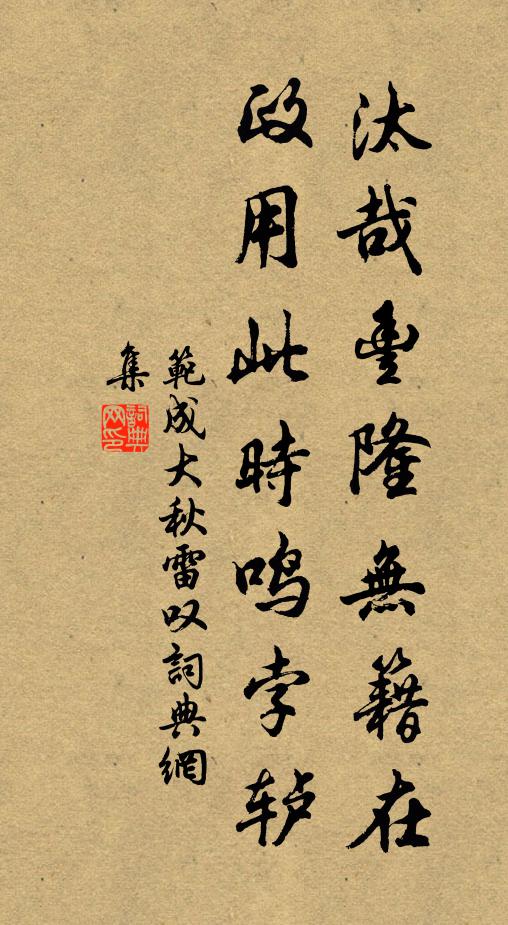 汰哉豐隆無籍在
政用此時鳴孛轳
範成大秋雷叹詞典網
集
詞典网印